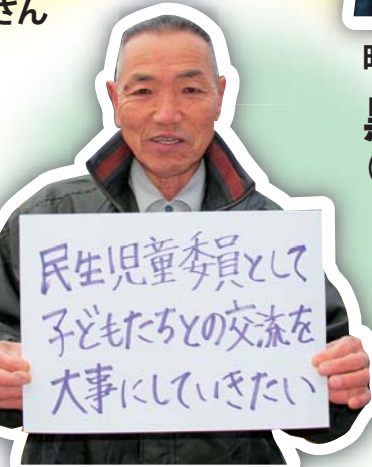 さん
民生児童委員として
子どもたちとの交流を
大事にしていきたい